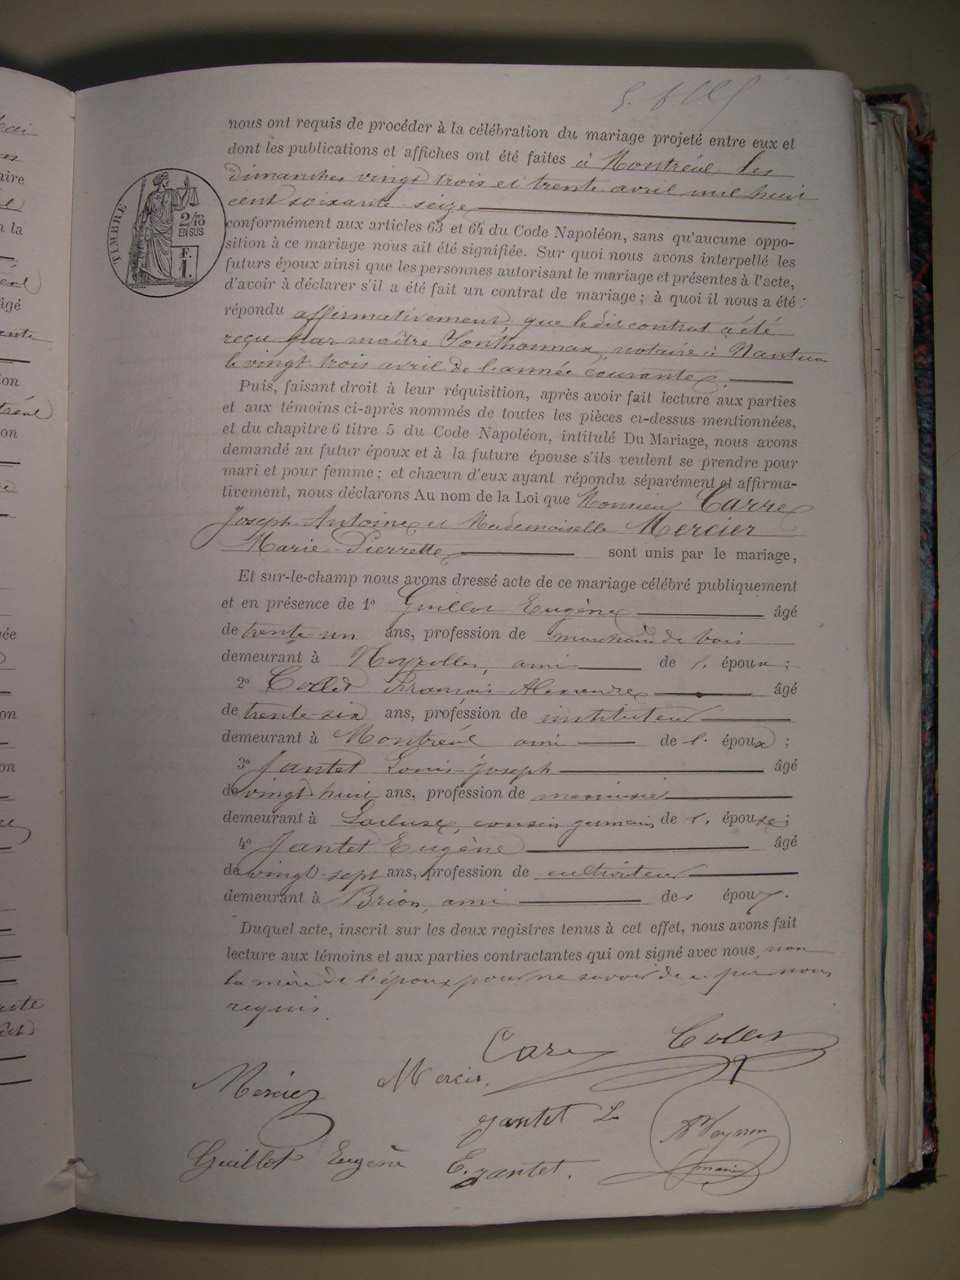 nous ont requis de procéder à la célébration du mariage projeté entre eux et
dont les publications et affiches ont été faites à Montréal les
dimanches vingt trois et trente avril mil huit
cent soixante seize
conformément aux articles 63 et 64 du Code Napoléon, sans qu'aucune oppo-
sition à ce mariage nous ait été signifiée. Sur quoi nous avons interpellé les
futurs époux ainsi que les personnes autorisant le mariage et présentes à l'acte,
d'avoir à déclarer s'il a été fait un contrat de mariage ; à quoi il nous a été
répondu affirmativement que le dit contrat a été
reçu par maître Sonthonnax, notaire à Nantua
le vingt trois avril de l'année courante.
Puis, faisant droit à leur réquisition, après avoir fait lecture aux parties
et aux témoins ci-après nommés de toutes les pièces ci-dessus mentionnées,
et du chapitre 6 titre 5 du Code Napoléon, intitulé Du Mariage, nous avons
demandé au futur époux et à la future épouse s'ils veulent se prendre pour
mari et pour femme ; et chacun d'eux ayant répondu séparément et affirma-
tivement, nous déclarons Au nom de la Loi que Monsieur Carre
Joseph Antoine et Mademoiselle Mercier
Marie Pierrette sont unis par le mariage,
Et sur-le-champ nous avons dressé acte de ce mariage célébré publiquement
et en présence de 1º Guillot Eugène âgé
de trente un ans, profession de marchand de bois
demeurant à Neyrolles, ami de l. époux ;
2º Collet François Alexandre âgé
de trente-six ans, profession de instituteur
demeurant à Montréal ami de l. époux ;
3º Jantet Louis-Joseph âgé
de vingt-huit ans, profession de menuisier
demeurant à cousin germain de l. épouse ;
4º Jantet Eugène âgé
de vingt-sept ans, profession de cultivateur
demeurant à Brion, ami des époux.
Duquel acte, inscrit sur les deux registres tenus à cet effet, nous avons fait
lecture aux témoins et aux parties contractantes qui ont signé avec nous, non
la mère de l'époux pour ne savoir de ce par nous
requis.
Care Collet
Mercier Mercier
Jantet L
Guillot Eugène E. Jantet.
maire
TIMBRE
2/10
EN SUS
F.
1.